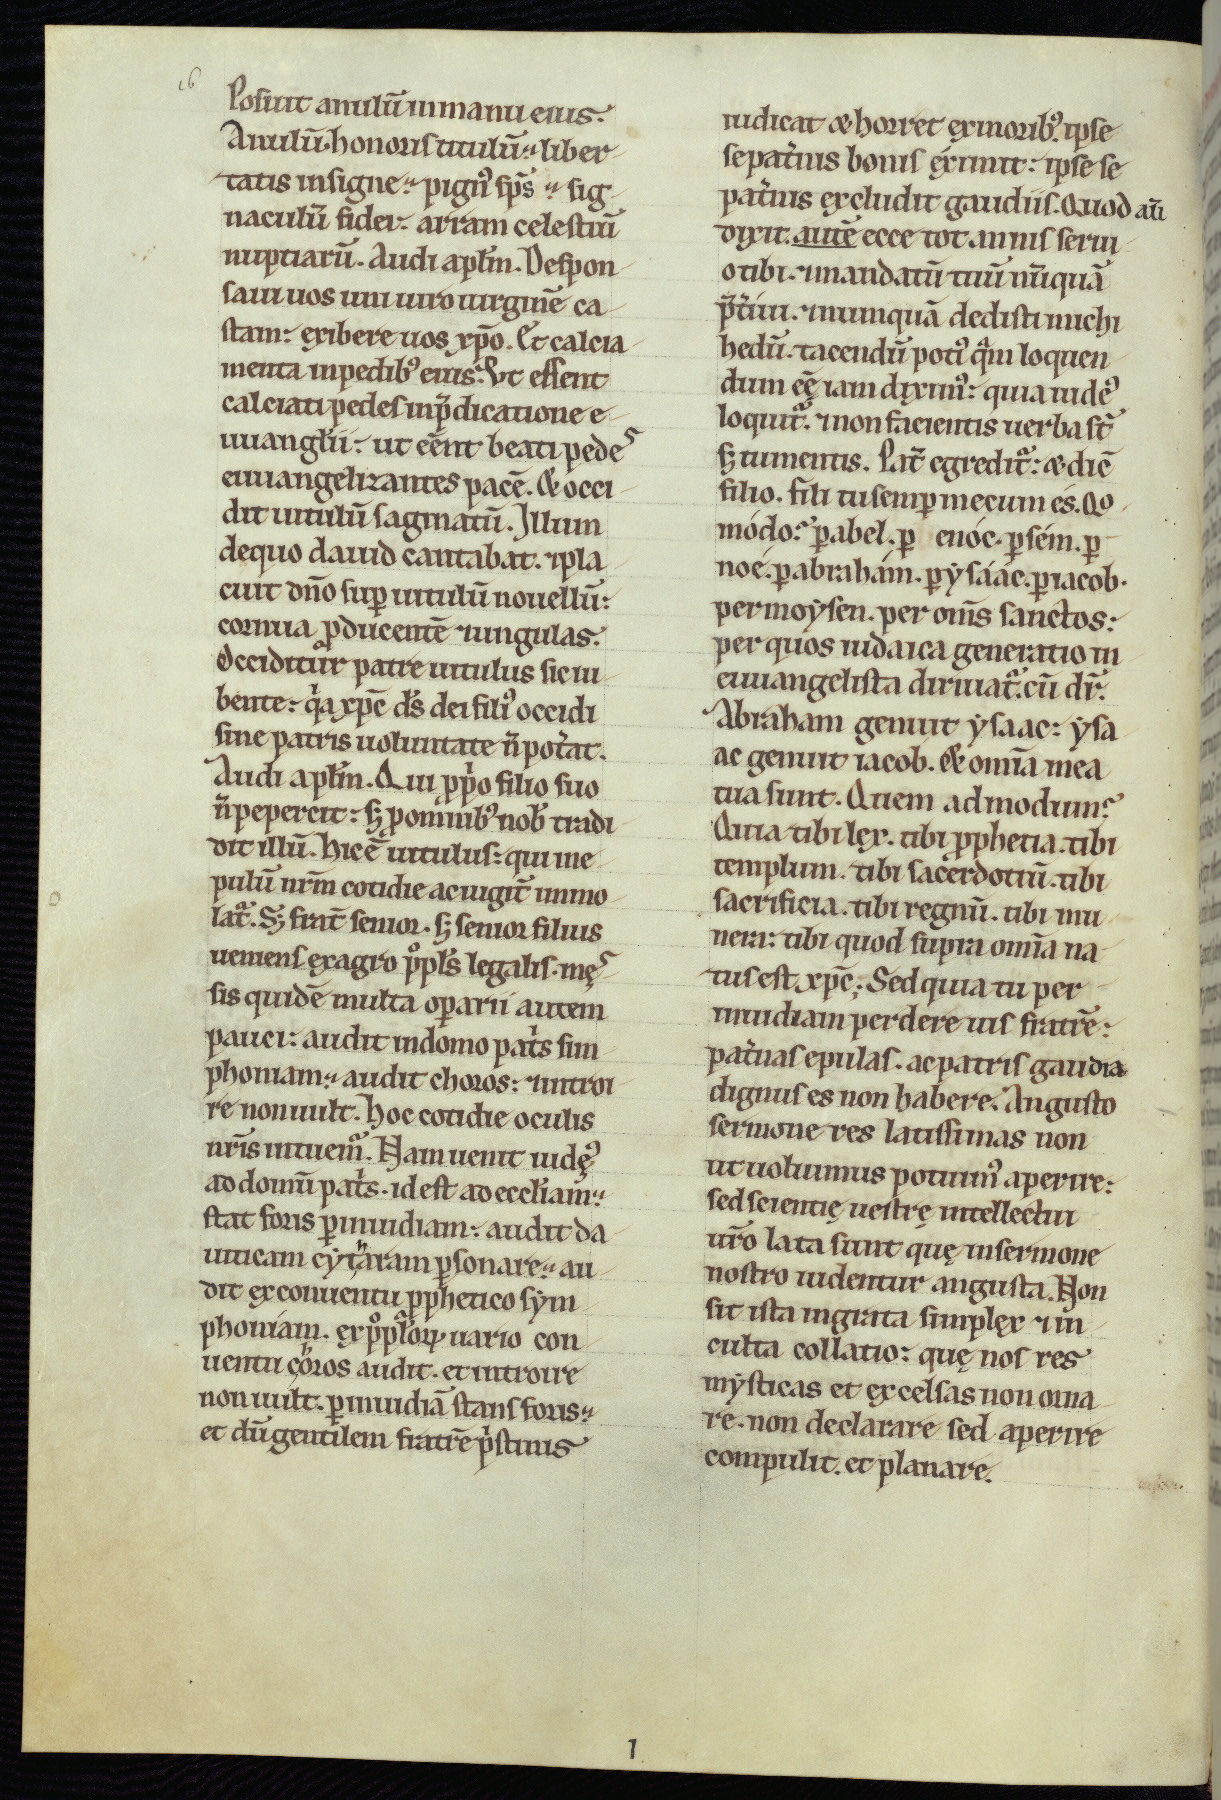 16
Posuit anulū in manu eius.
Anulū honoris titulū. liber
tatis insigne. pign᷒ sp̄s. sig
naculū fidei. arram celestiū
nuptiarū. Audi apl̄m. Despon
saui uos uni uiro uirginē ca
stam. exibere uos xp̄o. Et calcia
menta in pedib᷒ eius. Vt essent
calciati pedes in p̄dicatione e
uuanglii. ut eēnt beati pedes
euuangelizantes pacē. & occi
dit uitulū saginatū. Illum
de quo dauid cantabat. ⁊ pla
cuit dn̄o sup̱ uitulū nouellū.
cornua p̱ducentē ⁊ ungulas.
Occiditur patre uitulus sic iu
bente. q̇a xp̄c d̄s dei fili᷒ occidi
sine patris uoluntate n̄ pot̓at.
Audi apl̄m. Qui pp̓o filio suo
n̄ pepercit. s; p̱ omnib᷒ nob̄ tradi
dit illū. Hic ē uitulus. qui in e
pulū nr̄m cotidie ac iugit̓ immo
lat̃. S; frat̓ senior. s; senior filius
ueniens ex agro pp̱ls legalis. mes
sis quidē multa op̱arii autem
pauci. audit in domo pat̓s sim
phoniam. audit choros. ⁊ introi
re non uult. Hoc cotidie oculis
nr̄is intuem̃. Nam uenit iudę᷒
ad domū pat̓s. id est ad eccl̄iam.
stat foris p̱ inuidiam. audit da
uiticam cẏtharam p̱sonare. au
dit ex conuentu pp̱hetico sẏm
phoniam. ex pp̱loꝝ uario con
uentu choros audit. et introire
non uult. p̱ inuidiā stans foris.
et dū gentilem fratrē p̓stinis
iudicat & horret ex morib᷒. ipse
se pat̓nis bonis éximit. ipse se
pat̓nis excludit gaudiis. Quod aū
dixit. autē ecce tot annis serui
o tibi. ⁊ mandatū tuū nūquā
p̄t̓ii. ⁊ numquā dedisti michi
hedū. tacendū poti᷒ q̃m loquen
dum eē iam dixim᷒. quia iude᷒
loquit̃. ⁊ non facientis uerba st̄
s; tumentis. Pat̓ egredit̃. & dic̄
filio. fili tu semp̱ mecum és. Qo
módo. p̱ abel. p̱ enóc. p̱ sém. p̱
noé. p̱ abrahám. p̱ ẏsáác. p̱ iacob.
per moẏsen. per om̄s sanctos.
per quos iudaica generatio in
euuangelista diriuat̃. cū dr̄.
Abraham genuit ẏsaac. ẏsa
ac genuit iacob. & om̄ia mea
tua sunt. Quem admodum.
Quia tibi lex. tibi pp̱hetia. tibi
templum. tibi sacerdotiū. tibi
sacrificia. tibi regnū. tibi mu
nera. tibi quod supra om̄ia na
tus est xp̄c; Sed quia tu per
inuidiam perdere uis fratrē.
pat̓nas epulas. ac patris gaudia
dignus es non habere. Angusto
sermone res latissimas non
ut uoluimus potuim᷒ aperire.
sed scientię uestrę intellectui
ur̄o lata sunt quę in sermone
nostro uidentur angusta. Non
sit ista ingrata simplex ⁊ in
culta collatio. quę nos res
mẏsticas et excelsas non orna
re. non declarare sed aperire
compulit. et planare.
1